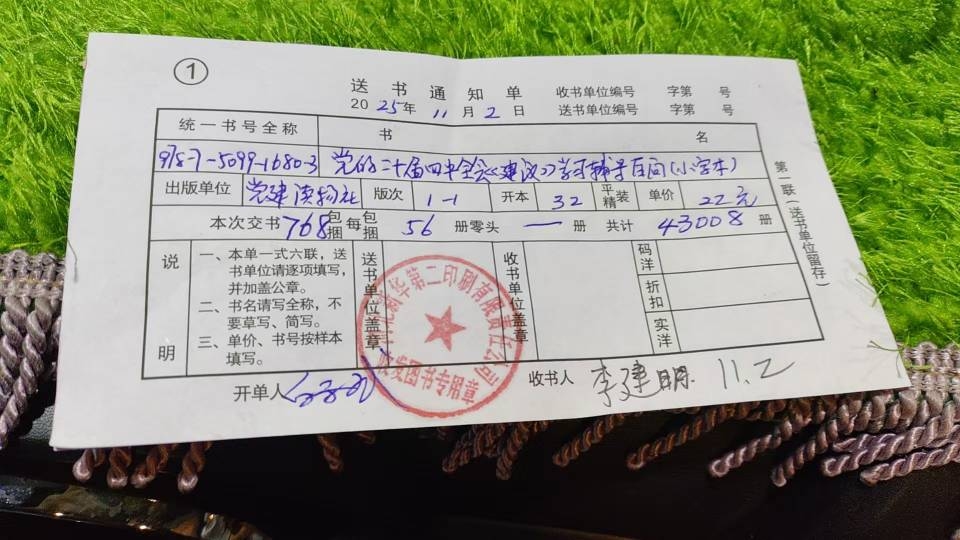 ①
送书通知单 收书单位编号 字第 号
2025年11月2日 送书单位编号 字第 号
统一书号全称 书名
978-7-5099-1680-3 党的二十届四中全会《建议》学习辅导百问(小字本)
出版单位 党建读物社 版次 1-1 开本 32 平精装 单价 22元
本次交书768包捆 每包捆56册零头—册 共计43008册
说明
一、本单一式六联，送
书单位请逐项填写，
并加盖公章。
二、书名请写全称，不
要草写、简写。
三、单价、书号按样本
填写。
送书单位盖章
新华第二印刷有限责任公司
发图书专用章
收书单位盖章
码洋
折扣
实洋
第一联（送书单位留存）
开单人
收书人 李建明 11.2